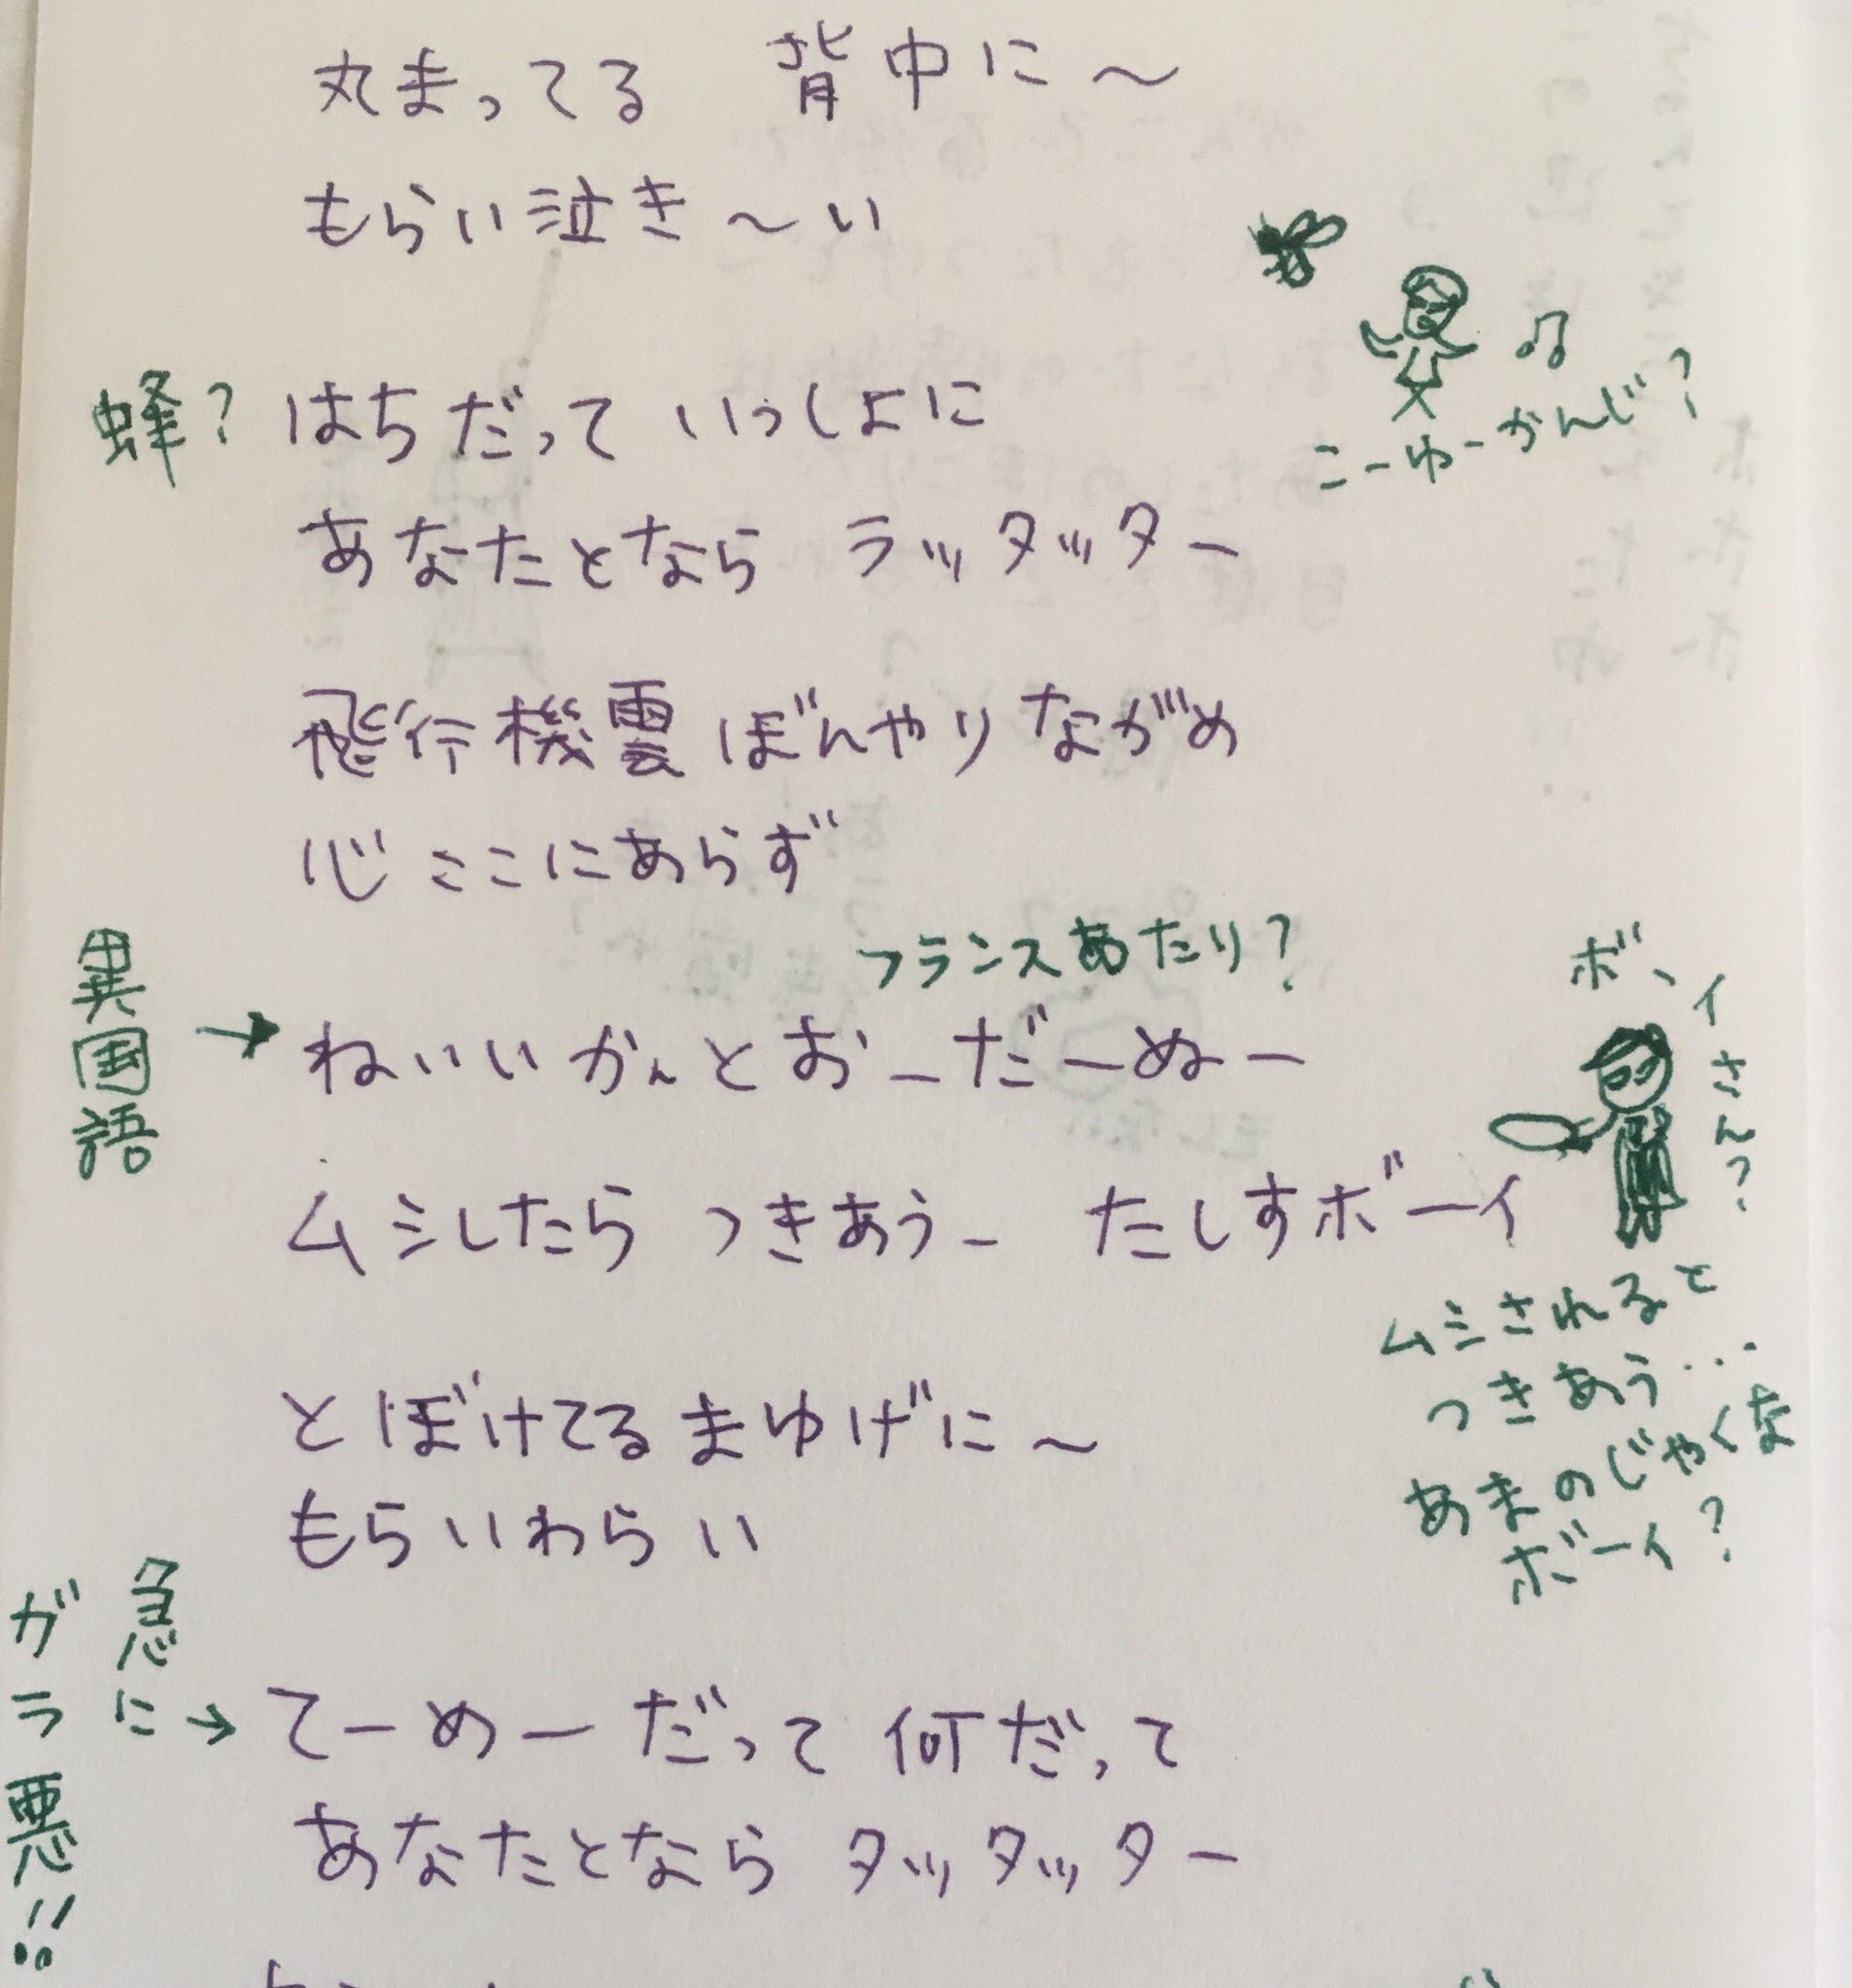 丸まってる 背中に〜
もらい泣き〜い
蜂? はちだって いっしょに
こーゆーかんじ?
あなたとなら ラッタッター
飛行機雲 ぼんやり ながめ
心 ここにあらず
フランスあたり?
異国語 → ねいいかんとおーだーぬー
ボーイさん?
ムシしたら つきあうー たしすボーイ
ムシされると
つきあう…
あまのじゃくな
ボーイ?
とぼけてる まゆげに〜
もらいわらい
急に
ガラ悪!!
→ てーめーだって 何だって
あなたとなら タッタッター